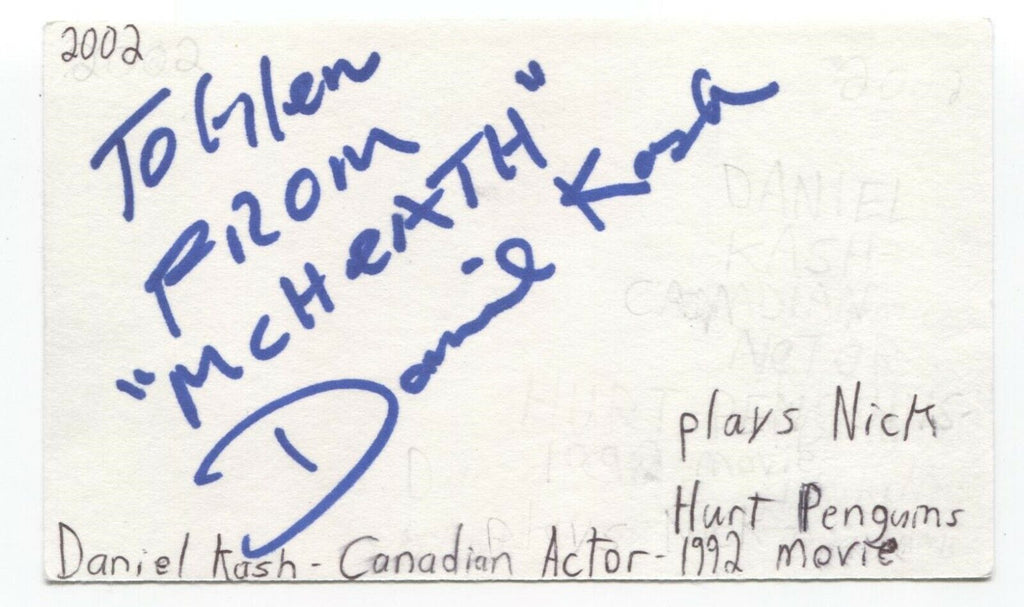 2002
To Glen
FROM
"MCHEATH"
Daniel Kash
plays Nick
Hurt Penguins
Daniel Kash - Canadian Actor - 1992 movie